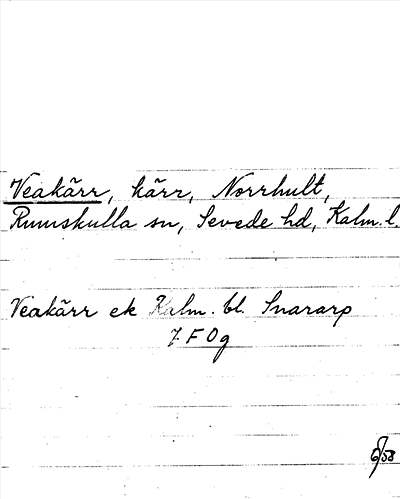 Veakärr, kärr, Norrhult,
Rumskulla sn, Sevede hd, Kalm. l.
Veakärr ek Kalm. bl. Snararp
7 F 0g
6/58